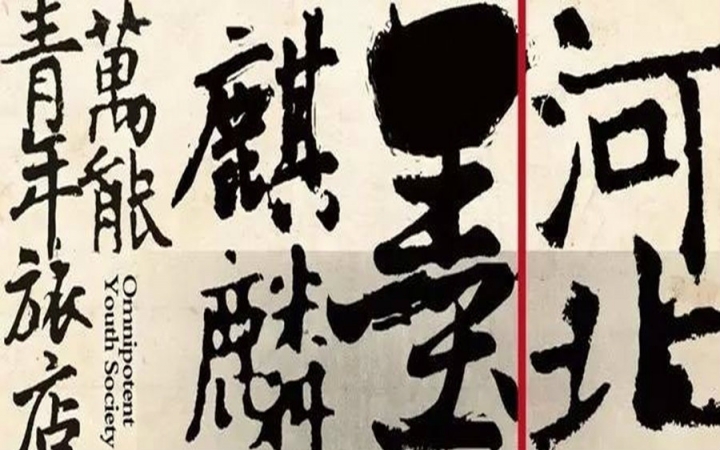 河北
墨
麒麟
萬能
青年旅店
Omnipotent
Youth Society